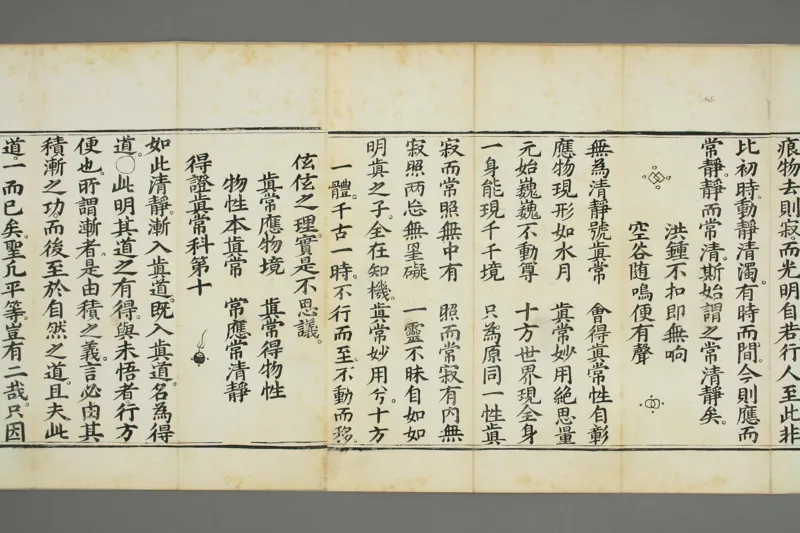 痕物去則寂而光明自若行人至此非
比初時。動靜清濁。有時而間。今則應而
常靜。靜而常清。斯始謂之常清靜矣。
洪鍾不扣即無响
空谷随鳴便有聲
無為清靜號真常　會得真常性自彰
應物現形如水月　真常妙用絕思量
元始巍巍不動尊　十方世界現全身
一身能現千千境　只為原同一性真
寂而常照無中有　照而常寂有內無
寂照两忘無罣礙　一靈不昧自如如
明真之子。全在知機。真常妙用兮。十方
一體。千古一時。不行而至。不動而移。
伭伭之理。實是不思議。
真常應物境　真常得物性
物性本真常　常應常清靜
得證真常科第十
如此清靜。漸入真道。既入真道。名為得
道。○此明其道之有得。與未悟者。行方
便也。所謂漸者。是由積之義。言必由其
積漸之功。而後至於自然之道。且夫此
道。一而已矣。聖凡平等。豈有二哉。只因